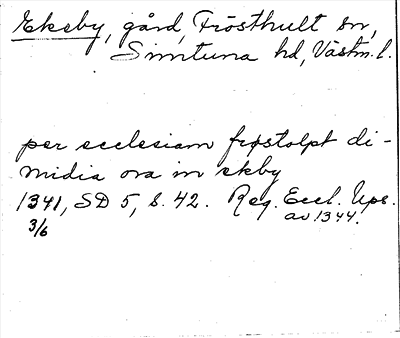 Ekeby, gård, Frösthult sn,
Simtuna hd, Västm. l.
per ecclesiam frøstolpt di-
midia ora in ekby
1341, SD 5, s. 42. Reg. Eccl. Ups.
av 1344.
3/6